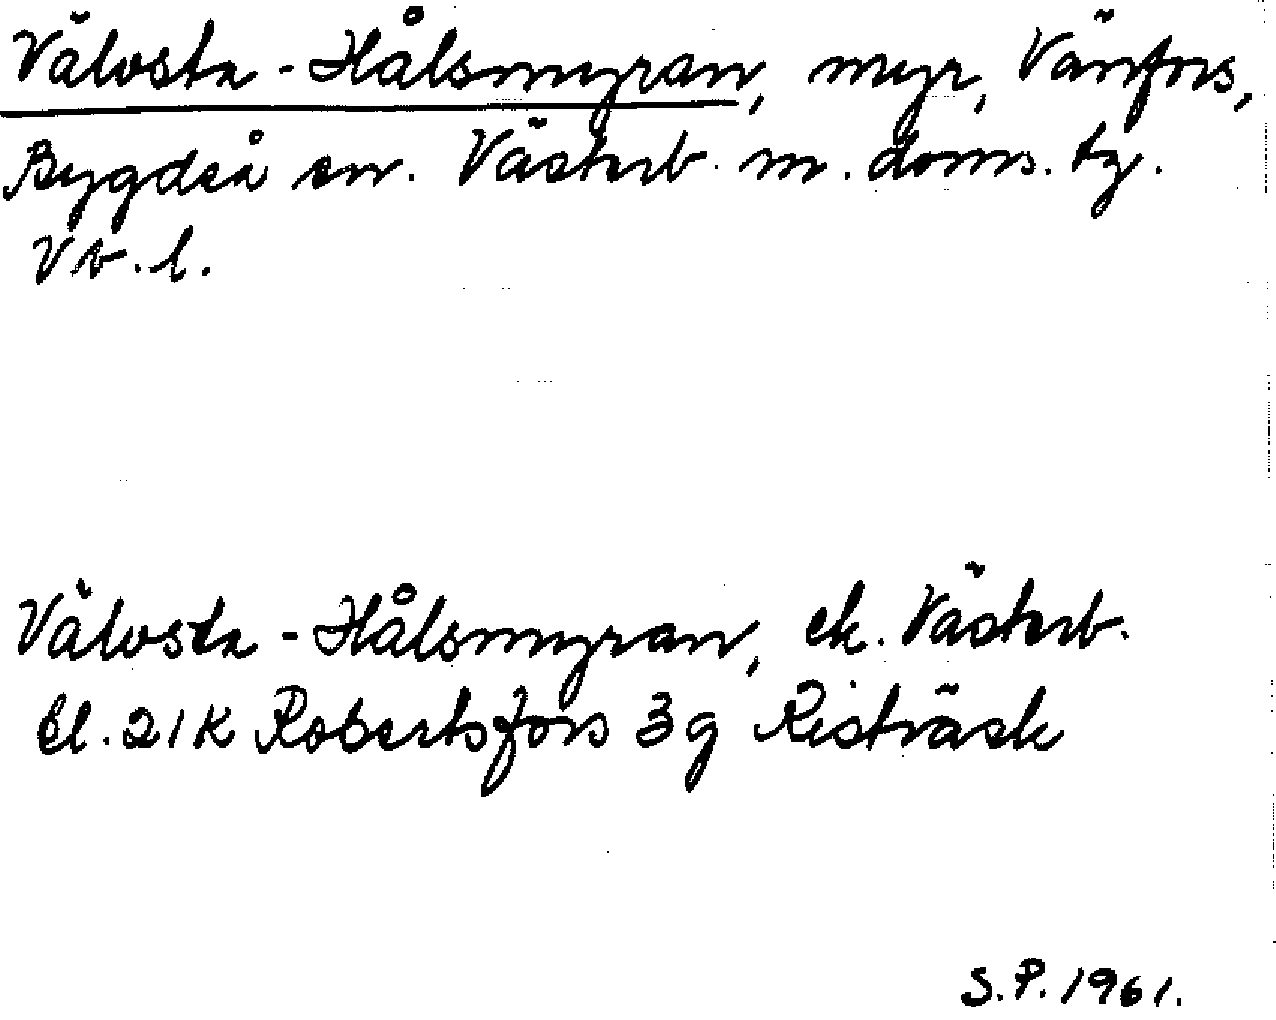 Välosta-Hålsmyran, myr, Vänfors,
Bygdeå sn. Västerb. m. doms. tg.
Vb.l.
Välosta-Hålsmyran, ek. Västerb.
bl. 21K Robertsfors 3g Risträsk
S.P. 1961.